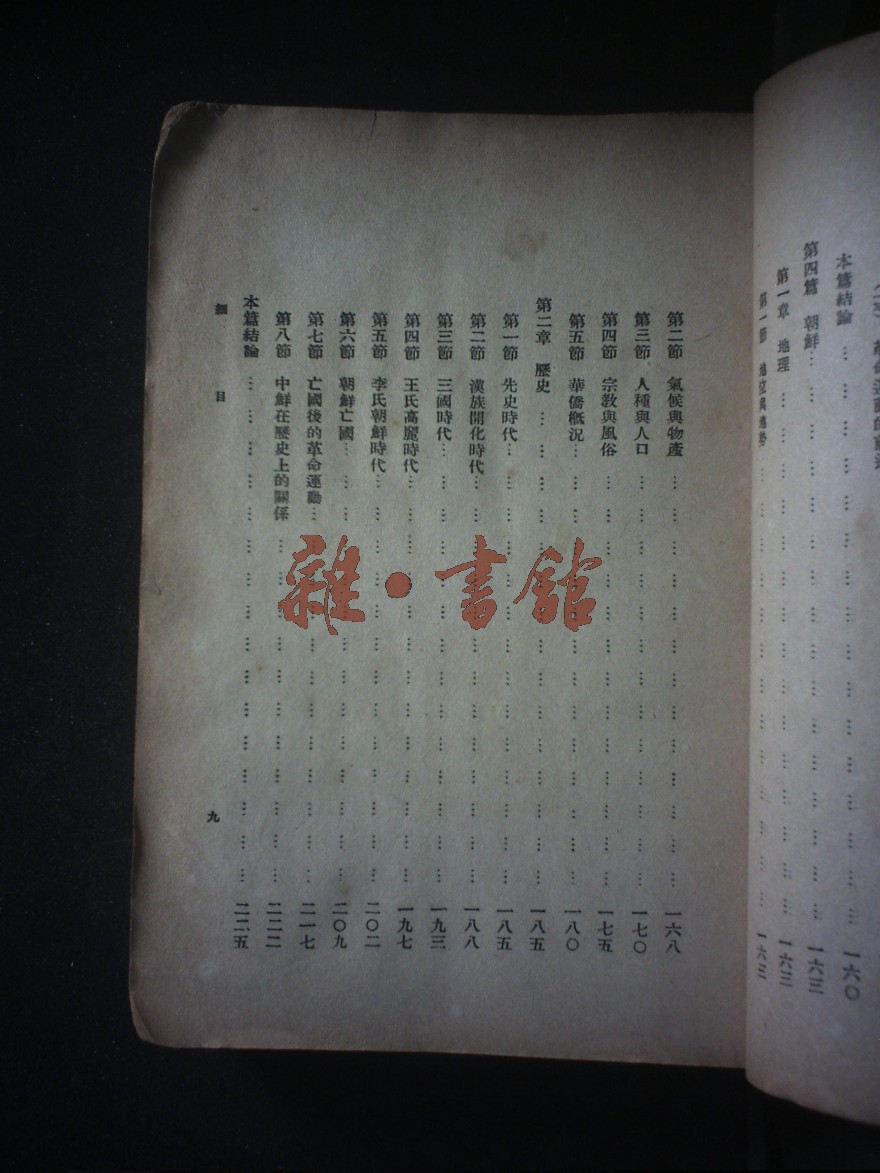 本篇結論 … … … … … … … … … 一六〇
第四篇 朝鮮… … … … … … … … … 一六三
第一章 地理 … … … … … … … … … 一六三
第一節 地位與地勢 … … … … … … … 一六三
第二節 氣候與物產 … … … … … … … … … … … … … 一六八
第三節 人種與人口 … … … … … … … … … … … … … 一七〇
第四節 宗教與風俗 … … … … … … … … … … … … … 一七五
第五節 華僑概況… … … … … … … … … … … … … 一八〇
第二章 歷史 … … … … … … … … … … … … … … … 一八五
第一節 先史時代… … … … … … … … … … … … … … 一八五
第二節 漢族開化時代… … … … … … … … … … … … … 一八八
第三節 三國時代… … … … … … … … … … … … … … 一九三
第四節 王氏高麗時代… … … … … … … … … … … … … 一九七
第五節 李氏朝鮮時代… … … … … … … … … … … … … 二〇二
第六節 朝鮮亡國… … … … … … … … … … … … … … 二〇九
第七節 亡國後的革命運動… … … … … … … … … … … … 二一七
第八節 中鮮在歷史上的關係 … … … … … … … … … … … 二二二
本篇結論 … … … … … … … … … … … … … … … … 二二五
細目
九
雜·書館